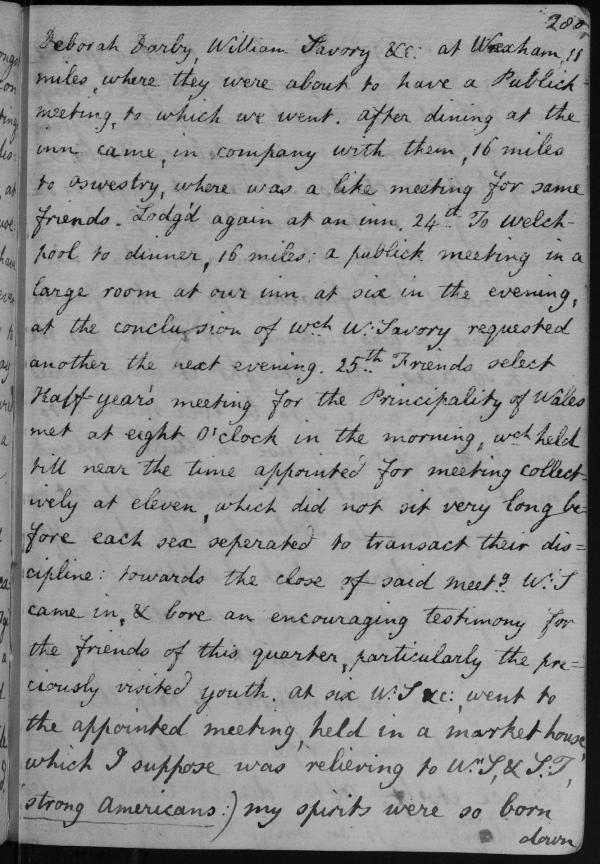 280
Deborah Darby, William Savory &c: at Wrexham, 11
miles, where they were about to have a Publick
meeting, to which we went. after dining at the
inn came, in company with them, 16 miles
to oswestry, where was a like meeting for same
friends. Lodg'd again at an inn. 24th To Welch-
pool to dinner, 16 miles; a publick meeting in a
large room at our inn at six in the evening,
at the conclusion of wch Wm Savory requested
another the next evening. 25th Friends select
Half-year's meeting for the Principality of Wales
met at eight O'clock in the morning, wch held
till near the time appointed for meeting collect=
ively at eleven, which did not sit very long be=
fore each sex seperated to transact their dis=
cipline: towards the close of said meetg Wm S
came in, & bore an encouraging testimony for
the friends of this quarter, particularly the pre=
ciously visited youth. at six Wm S &c: went to
the appointed meeting, held in a market house,
which I suppose was relieving to Wm S, & S.T,
strong americans:) my spirits were so born
down